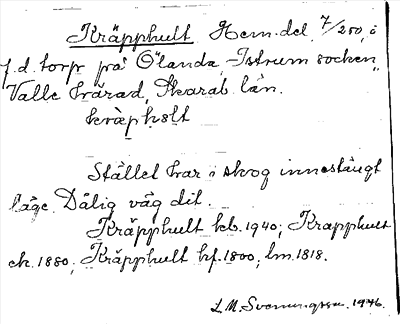 Kräpphult Hem.del 7/250, i
f.d. torp på Ölanda, Istrum socken,
Valle härad, Skarab. län.
kräphølt
Stället har i skog innestängt
läge. Dålig väg dit.
Kräpphult kb. 1940; Krapphult
ek. 1880; Kräpphult hf. 1800; lm. 1818.
L.M. 1946.